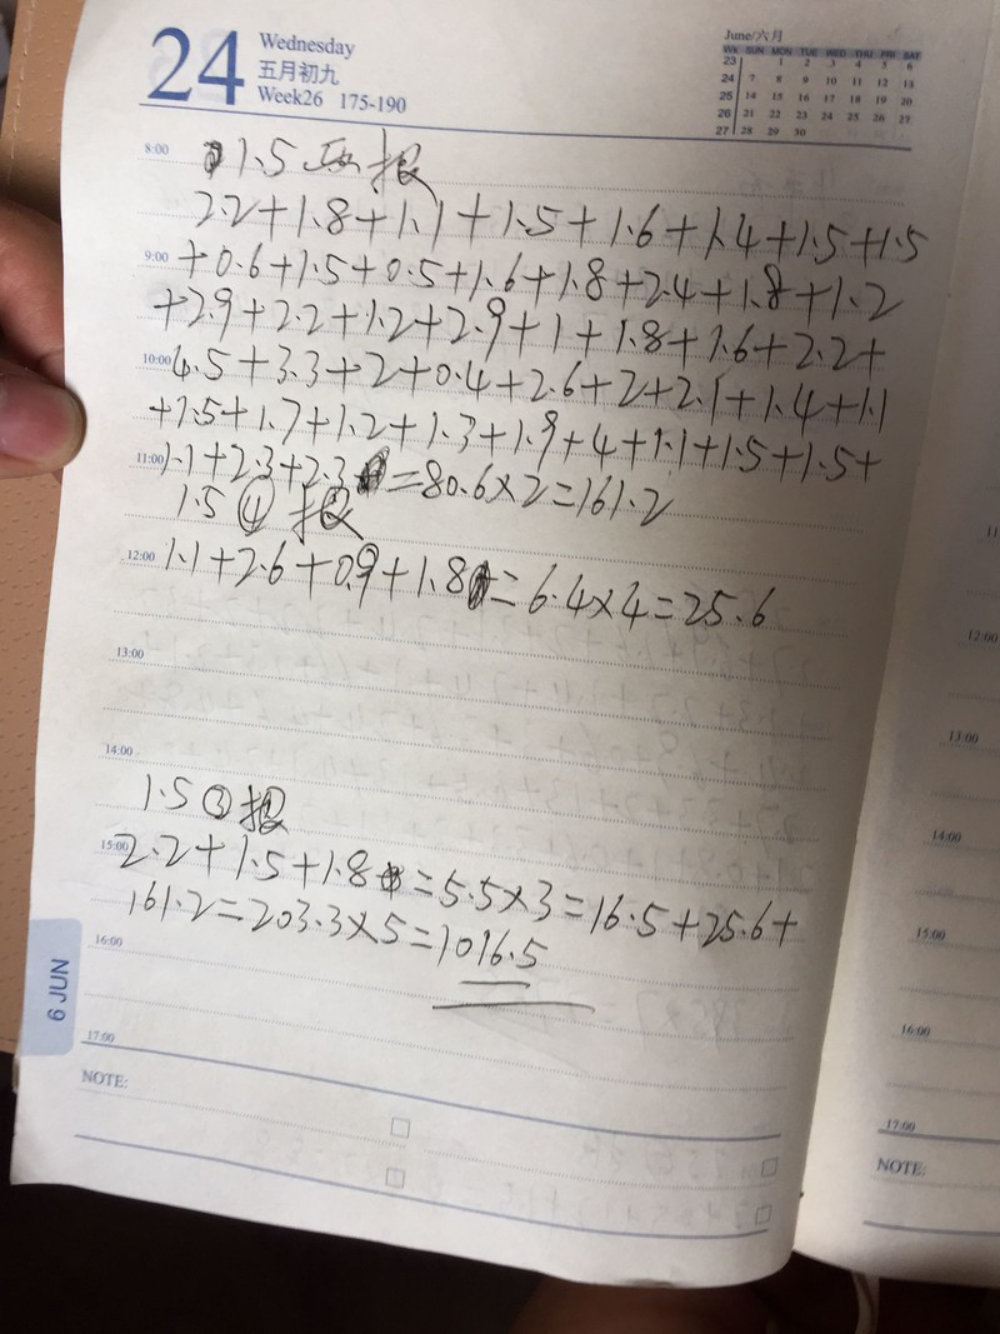 24 Wednesday
五月初九
Week26 175-190
June/六月
WK SUN MON TUE WED THU FRI SAT
23 1 2 3 4 5 6
24 7 8 9 10 11 12 13
25 14 15 16 17 18 19 20
26 21 22 23 24 25 26 27
27 28 29 30
8:00
1.5 报
2.2+1.8+1.1+1.5+1.6+1.4+1.5+1.5
9:00
+0.6+1.5+0.5+1.6+1.8+2.4+1.8+1.2
+2.9+2.2+1.2+2.9+1+1.8+1.6+2.2+
10:00
4.5+3.3+2+0.4+2.6+2+2.1+1.4+1.1
+1.5+1.7+1.2+1.3+1.9+4+1.1+1.5+1.5+
11:00
1.1+2.3+2.3=80.6×2=161.2
1.5④报
12:00
1.1+2.6+0.9+1.8=6.4×4=25.6
13:00
14:00
1.5③报
15:00
2.2+1.5+1.8=5.5×3=16.5+25.6+
161.2=203.3×5=1016.5
16:00
17:00
NOTE:
6 JUN
12:00
13:00
14:00
15:00
16:00
17:00
NOTE: